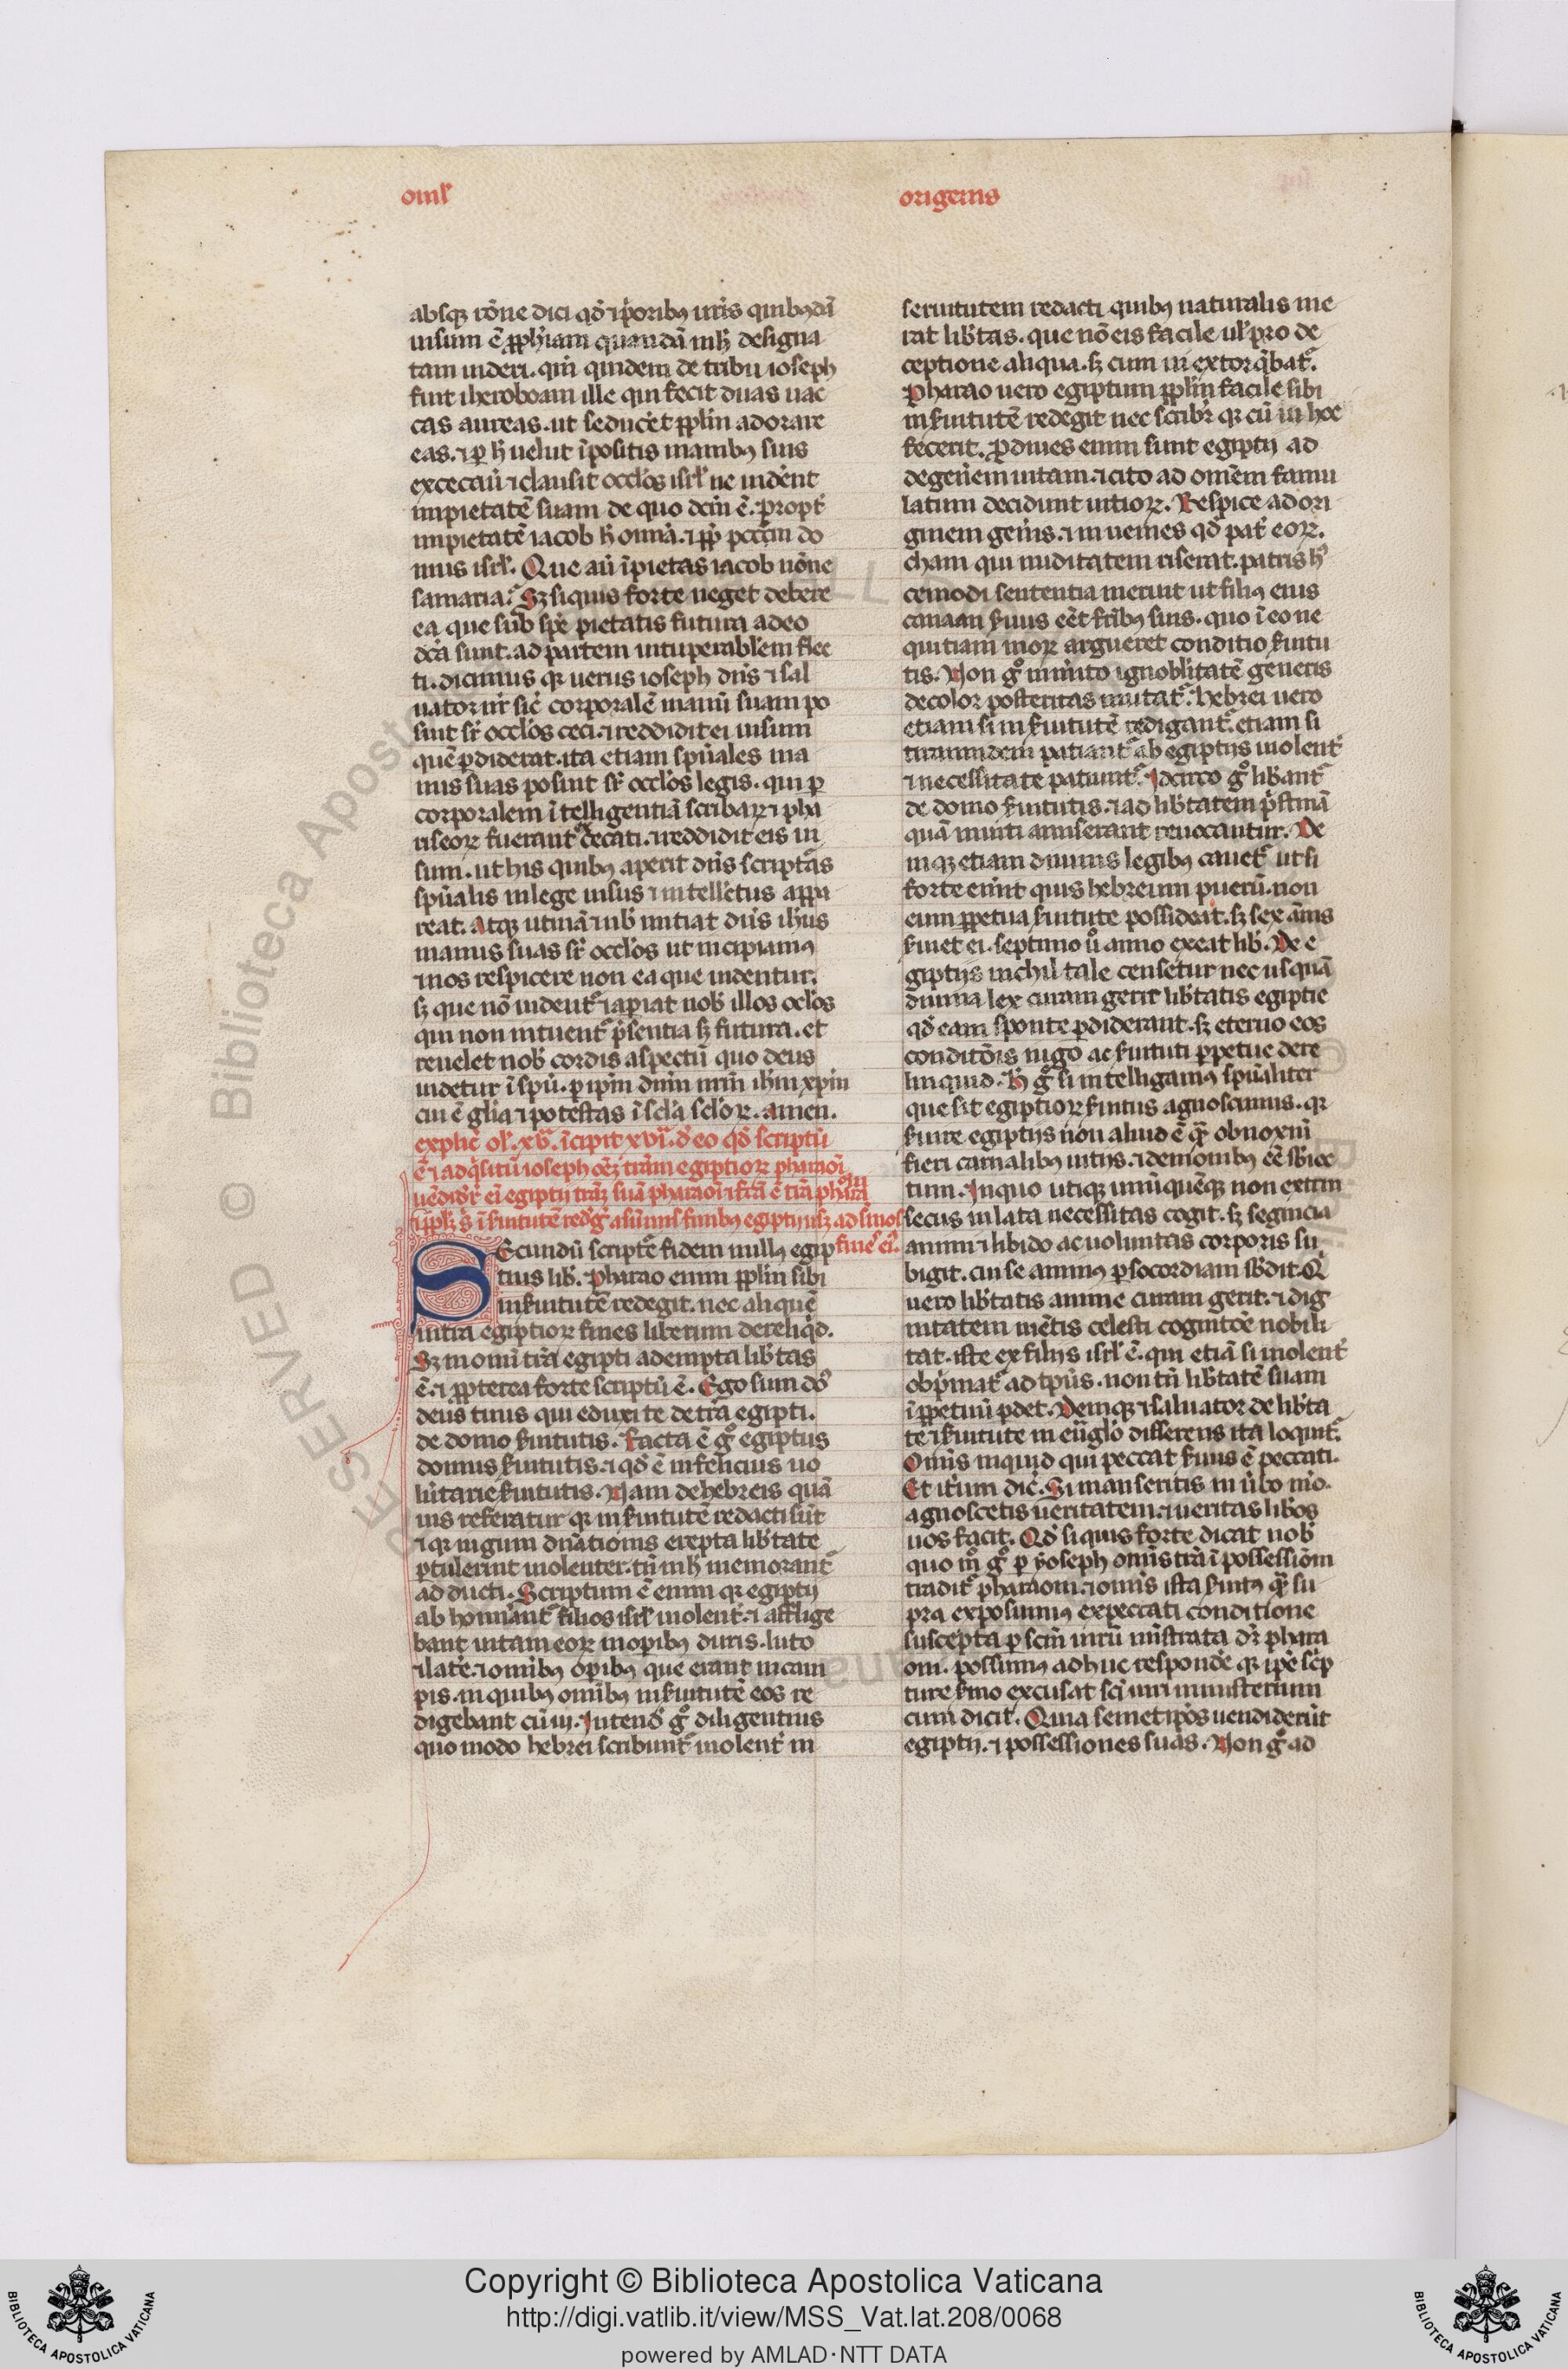 omīƚ
origenis
absq; rōne dici qđ ⁊ p̄orib; ur̄is quibusdā
uisum ē ꝓph̄iam quandā in h̄ designa
tam uideri. qm̄ quidem de tribu ioseph
fuit iheroboam ille qui fecit duas uac
cas aureas. ut seducet ꝓplm̄ adorare
eas. ⁊ ꝑ h̄ uelut īpositis manib; suis
excecauit ⁊ clausit occl̄os isrl̄ ne uiđent
impietatē suam de quo dcm̄ ē. Propt̄
impietatē iacob h̄ omīa. ⁊ ꝓp̄ pcc̄m do
mus isrl̄. Que aū īpietas iacob nōne
samaria. Sȝ si quis forte neget debere
ea que sub spē pietatis futura adeo
dc̄a sunt. ad partem uituperabl̄em flec
ti. dicimus qꝫ uerus ioseph dn̄s ⁊ sal
uator nr̄ sic̄ corporalē manū suam po
suit sr̄ occl̄os ceci. ⁊ reddidit ei uisum
quē ꝑdiderat. ita etiam spūales ma
nus suas posuit sr̄ occl̄os legis. qui ꝑ
corporalem ītelligentiā scribaꝝ ⁊ pha
riseoꝝ fuerant cecati. ⁊ reddidit eis ui
sum. ut his quib; aperit dn̄s scriptas
spūalis in lege uisus ⁊ intellectus appa
reat. Atq; utinā ⁊ nob̄ mittat dn̄s ih̄us
manus suas sr̄ occl̄os ut incipiam;
⁊ nos respicere non ea que uidentur.
sȝ que nō uident̄ ⁊ apiat nob̄ illos ocl̄os
qui non intuent̄ p̄sentia sȝ futura. et
reuelet nob̄ cordis aspectū quo deus
uidetur ī spū. ꝑ ip̄m dn̄m nr̄m ih̄m xp̄m
cui ē glīa ⁊ potestas ī scl̄a scl̄oꝝ. amen.
explic̄ ol̄. xv. īcipit xvi. d̄ eo qđ scriptū
ē ⁊ adq̄situ ioseph oēȝ trām egiptioꝝ pharaoī
uēdider̄ eī egiptij trāȝ suā pharaoī ⁊ fcā ē trā pharaoī
Ecundū scripte fidem nullus egip
tius lib̄. Pharao enim ꝓplm̄ sibi
in s̄uitutē redegit. nec aliquē
intra egiptioꝝ fines liberum derelīq̄d.
Sȝ in omī trā egipti adempta lib̄tas
ē. ⁊ ꝓpterea forte scriptū ē. Ego sum dōs
deus tuus qui eduxi te de trā egipti.
de domo s̄uitutis. Facta ē gͦ egiptus
domus s̄uitutis. ⁊ qđ ē infelicius uo
lūtarie s̄uitutis. Nam de hebreis quā
uis referatur qꝫ in s̄uitutē redacti sūt
⁊ qꝫ iugum dn̄ationis erepta lib̄tate
ꝑtulerint uiolenter. tn̄ in h̄ memorant̄
ad ducti. Scriptum ē enim qꝫ egiptij
ab hominant̄ filios isrl̄ uiolent̄. ⁊ afflige
bant uitam eoꝝ in opib; duris. luto
⁊ late. ⁊ omib; opib; que erant in cam
pis. in quib; omib; in s̄uitutē eos re
digebant cū ui. Intend̄ gͦ diligentius
quo modo hebrei scribunt̄ uiolent̄ in
seruitutem redacti quib; naturalis ine
rat lib̄tas. que nō eis facile ul̄ pro de
ceptione aliqua. sȝ cum ui extorq̄bat̄.
Pharao uero egiptum ꝓplm̄ facile sibi
in s̄uitutē redegit nec scribr̄ qꝫ cū ui hoc
fecerit. Prodiues enim sunt egiptij ad
degenem uitam. ⁊ cito ad omēm famu
latum decidunt uitioꝝ. Respice ad ori
ginem gen̄is. ⁊ inuenies qđ pat̄ eoꝝ.
cham qui nuditatem riserat. patris h̄
cemodi sententia meruit ut filius eius
canaan s̄uus eēt frīb; suis. quo ī eo ne
quitiam moꝝ argueret conditio s̄uitu
tis. Non gͦ inmīto ignobl̄itatē generis
decolor posteritas imitat̄. hebrei uero
etiam si in s̄uitutē redigant̄. etiam si
tirannidem patiant̄ ab egiptijs uiolent̄
⁊ necessitate patiunt̄. Idcirco gͦ lib̄ant̄
de domo s̄uitutis. ⁊ ad lib̄tatem p̄stinā
quā inuiti amiserant reuocantur. De
niq; etiam diuinis legib; cauet̄ ut si
forte emit quis hebreum puerū. non
eum ꝑpetua s̄uitute possideat. sȝ sex ānis
s̄uiet ei. septimo u̅ anno exeat lib̄. De e
giptijs nichil tale censetur nec usquā
diuina lex curam gerit lib̄tatis egiptie
qđ eam sponte ꝑdiderant. sȝ eterno eos
conditōis iugo ac s̄uituti ꝑpetue dere
linquid. H̄ gͦ si intelligam; spūaliter
que sit egiptioꝝ s̄uitus agnoscimus. qꝫ
s̄uire egiptijs non aliud ē q̄ obnoxiū
fieri carnalib; uitijs. ⁊ demonib; eē sb̄iec
tum. In quo utiq; unūquēq; non extrin
secus inlata necessitas cogit. sȝ segnicia
animi ⁊ libido ac uoluntas corporis su
bigit. cui se anim; ꝑ socordiam sb̄dit. Q
uero lib̄tatis anime curam gerit. ⁊ dig
nitatem mētis celesti cogitōe nobili
tat. iste ex filijs isrl̄ ē. qui etiā si uiolent̄
opprimat̄ ad tp̄us. non tn̄ lib̄tatē suam
ī ꝑpetuū ꝑdet. Deniq; ⁊ saluator de lib̄ta
te ⁊ s̄uitute in eūglo differens ita loquit̄.
Omīs inquid qui peccat s̄uus ē peccati.
Et it̄um dic̄. Si manseritis in ūbo meo
agnoscetis ueritatem. ⁊ ueritas lib̄os
uos facit. Qđ si quis forte dicat nob̄
quo mͦ gͦ ꝑ yoseph omīs trā ī possessiōm
tradit̄ pharaoni. ⁊ omīs ista s̄uit; q̄ su
pra exposuim; ex peccati conditione
suscepta ꝑ scm̄ uirū mīstrata dr̄ phara
oni. possum; ad huc responde qꝫ ip̄e sc̄p
ture s̄mo excusat sc̄i uiri ministerium
cum dicit. Quia semetip̄os uendiderūt
egiptij. ⁊ possessiones suas. Non gͦ ad
RESERVED © Biblioteca Apostolica Vaticana
Copyright © Biblioteca Apostolica Vaticana
http://digi.vatlib.it/view/MSS_Vat.lat.208/0068
powered by AMLAD·NTT DATA
BIBLIOTECA APOSTOLICA VATICANA
BIBLIOTECA APOSTOLICA VATICANA